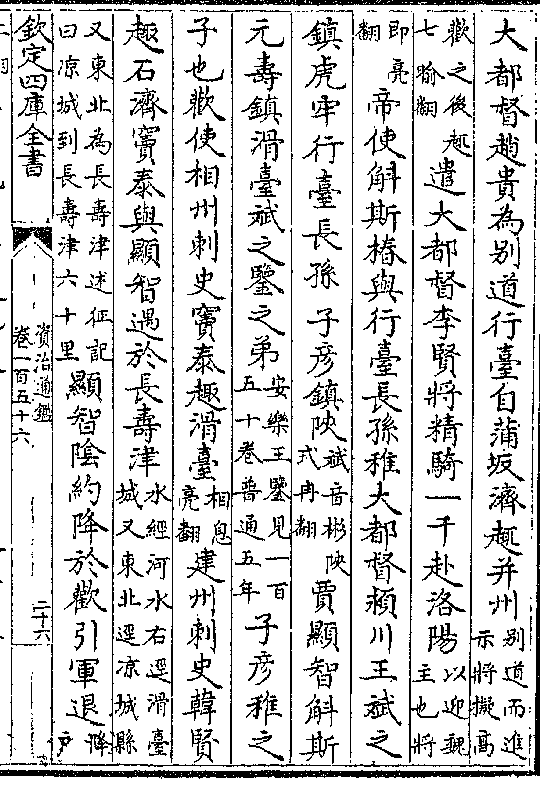 大都督趙貴為别道行臺自蒲坂濟趣并州别道而進示將擬高
歡之後趣七喻翻遣大都督李賢將精騎一千赴洛陽以迎魏主也將
即亮翻帝使斛斯椿與行臺長孫稚大都督潁川王斌之
鎮虎牢行臺長孫子彦鎮陜斌音彬陜式冉翻賈顯智斛斯
元壽鎮滑臺斌之鑒之弟安樂王鑒見一百五十卷普通五年子彦稚之
子也歡使相州刺史竇泰趣滑臺相息亮翻建州刺史韓賢
趣石濟竇泰與顯智遇於長壽津水經河水右逕滑臺城又東北逕凉城縣
又東北為長壽津述征記曰凉城到長壽津六十里顯智陰約降於歡引軍退降户
欽定四庫全書
資治通鑑
卷一百五十六
二十六